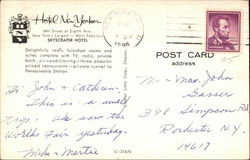 Hotel New Yorker
34th Street at Eighth Ave.
New York's Largest — Most Popular
SKYSCRAPER HOTEL
Delightfully newly furnished rooms and
suites complete with TV, radio, private
bath, air-conditioning—three popular
priced restaurants—private tunnel to
Pennsylvania Station.
POST CARD
address
Hi, John & Cathrin
This is a swell
trip. We saw the
Worlds Fair yesterday.
Mike & Martie
Mr. & Mrs. John
Gasser
348 Simpson Rd.
Rochester NY
14617